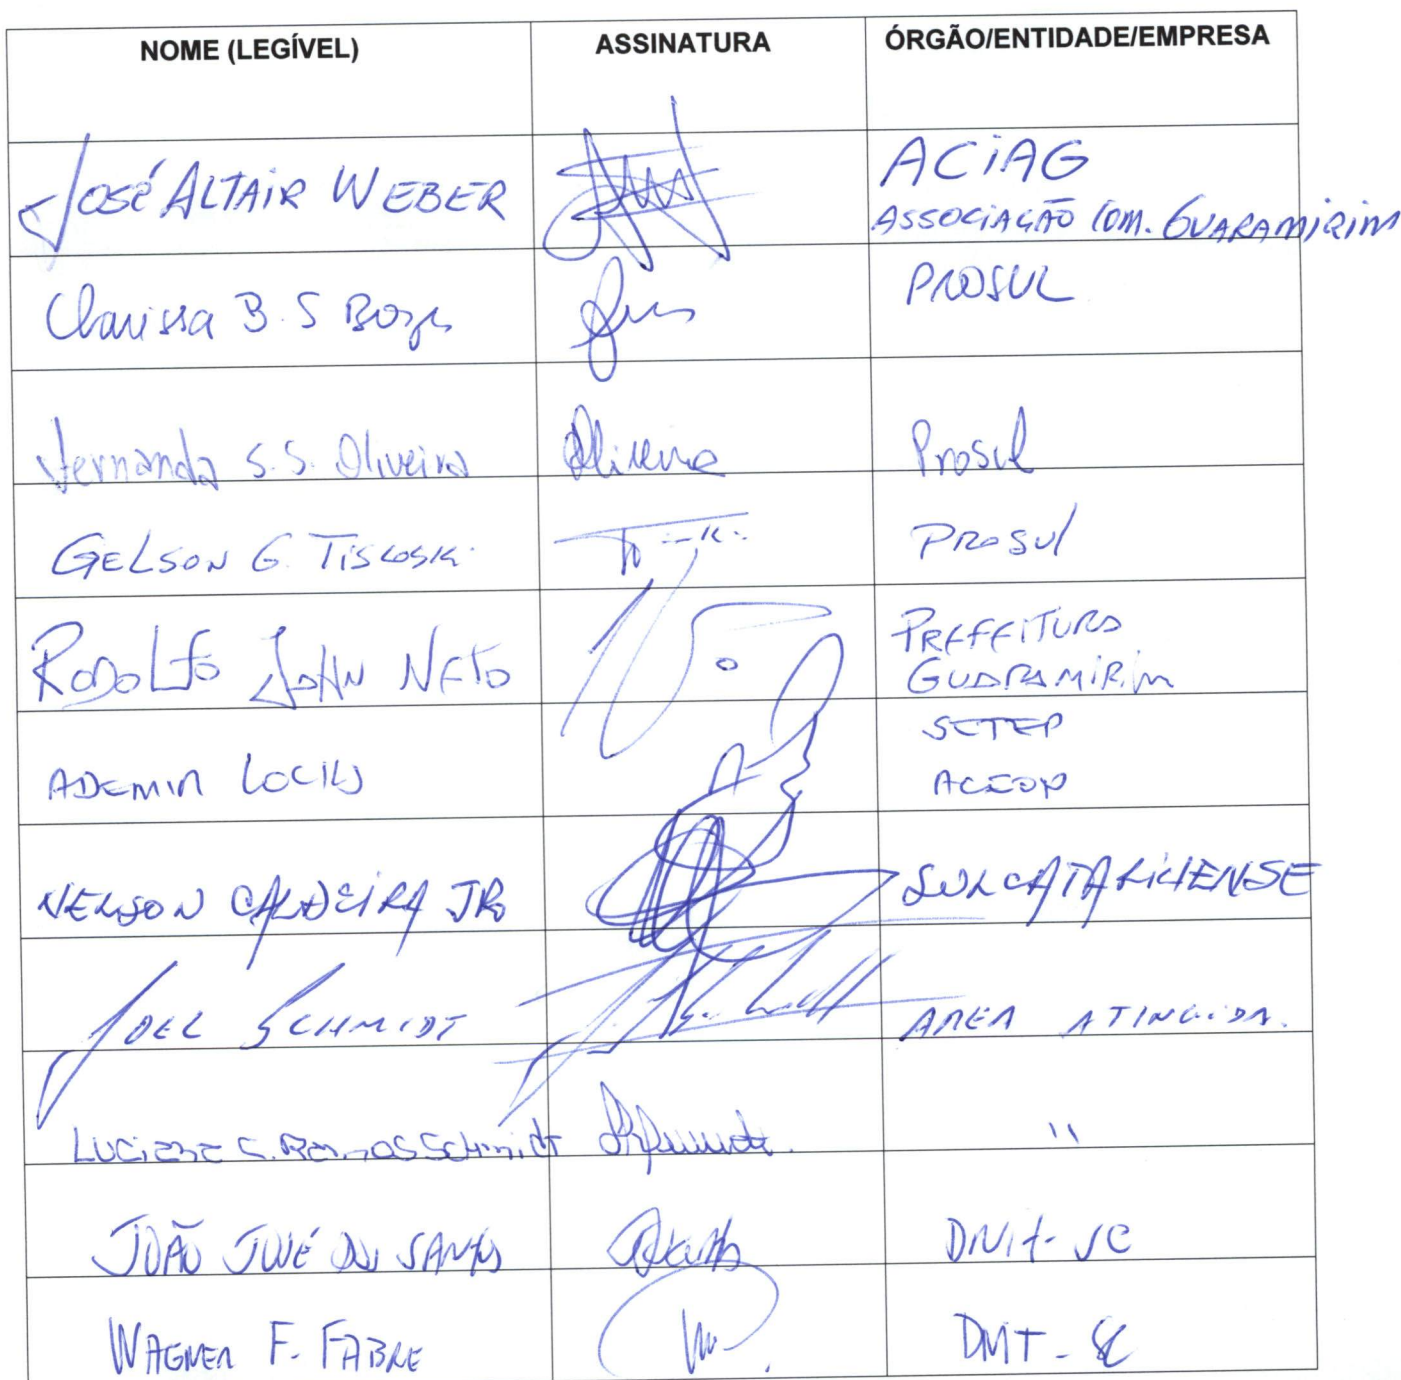 NOME (LEGÍVEL) ASSINATURA ÓRGÃO/ENTIDADE/EMPRESA
JOSÉ ALTAIR WEBER ACIAG
ASSOCIAÇÃO COM. GUARAMIRIM
Clarissa B. S PROSUL
Fernanda S. S. Oliveira Oliveira Prosul
GELSON G. TISCOSKI Prosul
RODOLFO JAHN NETO PREFEITURA
GUARAMIRIM
SETEP
ADEMIR
NELSON CALDEIRA JR SULCATARINENSE
JOEL SCHMIDT AREA ATINGIDA.
LUCIANE C. RAMOS Schmidt "
JOÃO JOSÉ DOS SANTOS DNIT-SC
WAGNER F. FABRE DNIT-SC